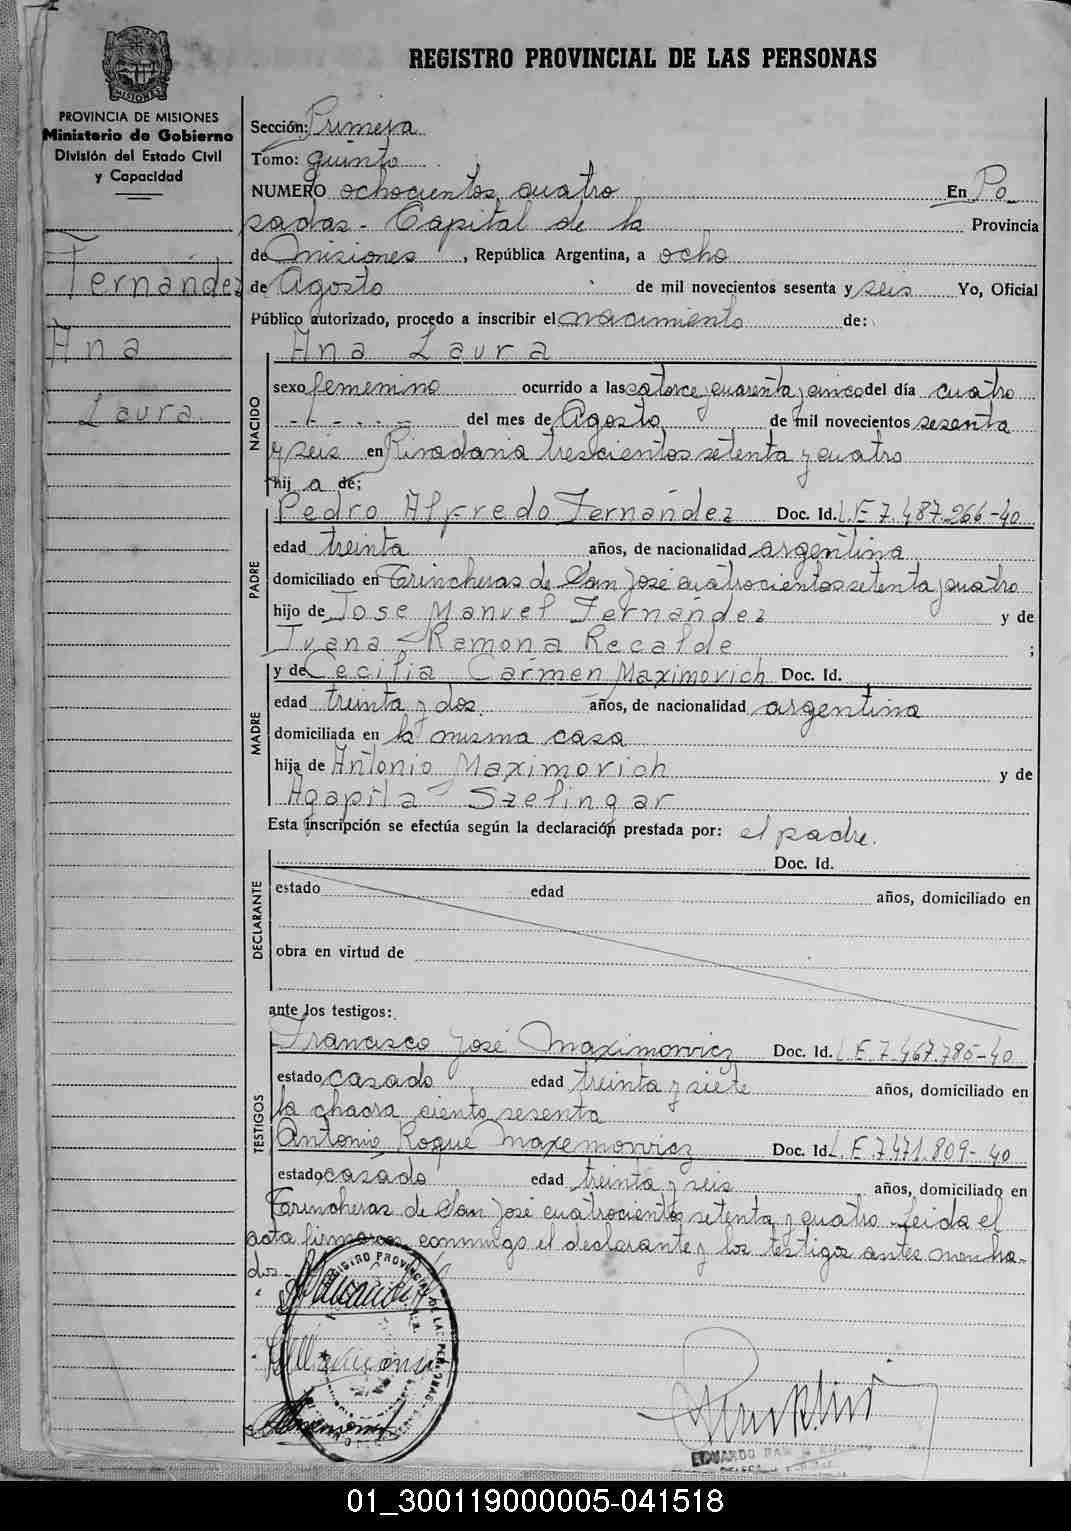 REGISTRO PROVINCIAL DE LAS PERSONAS
MISIONES
PROVINCIA DE MISIONES
Ministerio de Gobierno
División del Estado Civil
y Capacidad
Fernández
Ana
Laura.
Sección: Primera
Tomo: quinto
NUMERO ochocientos cuatro En Po
sadas - Capital de la Provincia
de Misiones, República Argentina, a ocho
de Agosto de mil novecientos sesenta y seis Yo, Oficial
Público autorizado, procedo a inscribir el nacimiento de:
Ana Laura
NACIDO
sexo femenino ocurrido a las catorce y cuarenta y cinco del día cuatro
del mes de Agosto de mil novecientos sesenta
y seis en Rivadavia trescientos setenta y cuatro
hij a de:
PADRE
Pedro Alfredo Fernández Doc. Id. L.E 7.487.266-40
edad treinta años, de nacionalidad argentina
domiciliado en Trincheras de San José cuatrocientos setenta y cuatro
hijo de José Manuel Fernandez y de
Juana Ramona Recalde ;
MADRE
y de Cecilia Carmen Maximovich Doc. Id.
edad treinta y dos. años, de nacionalidad argentina
domiciliada en la misma casa
hija de Antonio Maximovich y de
Agapita Szelingar
Esta inscripción se efectúa según la declaración prestada por: el padre.
DECLARANTE
Doc. Id.
estado edad años, domiciliado en
obra en virtud de
ante los testigos:
TESTIGOS
Francisco José Maximowicz Doc. Id. L.E.7.467.785-40
estado casado edad treinta y siete años, domiciliado en
la chacra ciento sesenta
Antonio Roque Maxemowicz Doc. Id. L.E.7471.809-40
estado casado edad treinta y seis años, domiciliado en
Trincheras de San José cuatrocientos setenta y cuatro - Leida el
acta firmaron conmigo el declarante y los testigos antes menciona-
dos.-
REGISTRO PROVINCIAL DE LAS PERSONAS
EDUARDO
01_300119000005-041518